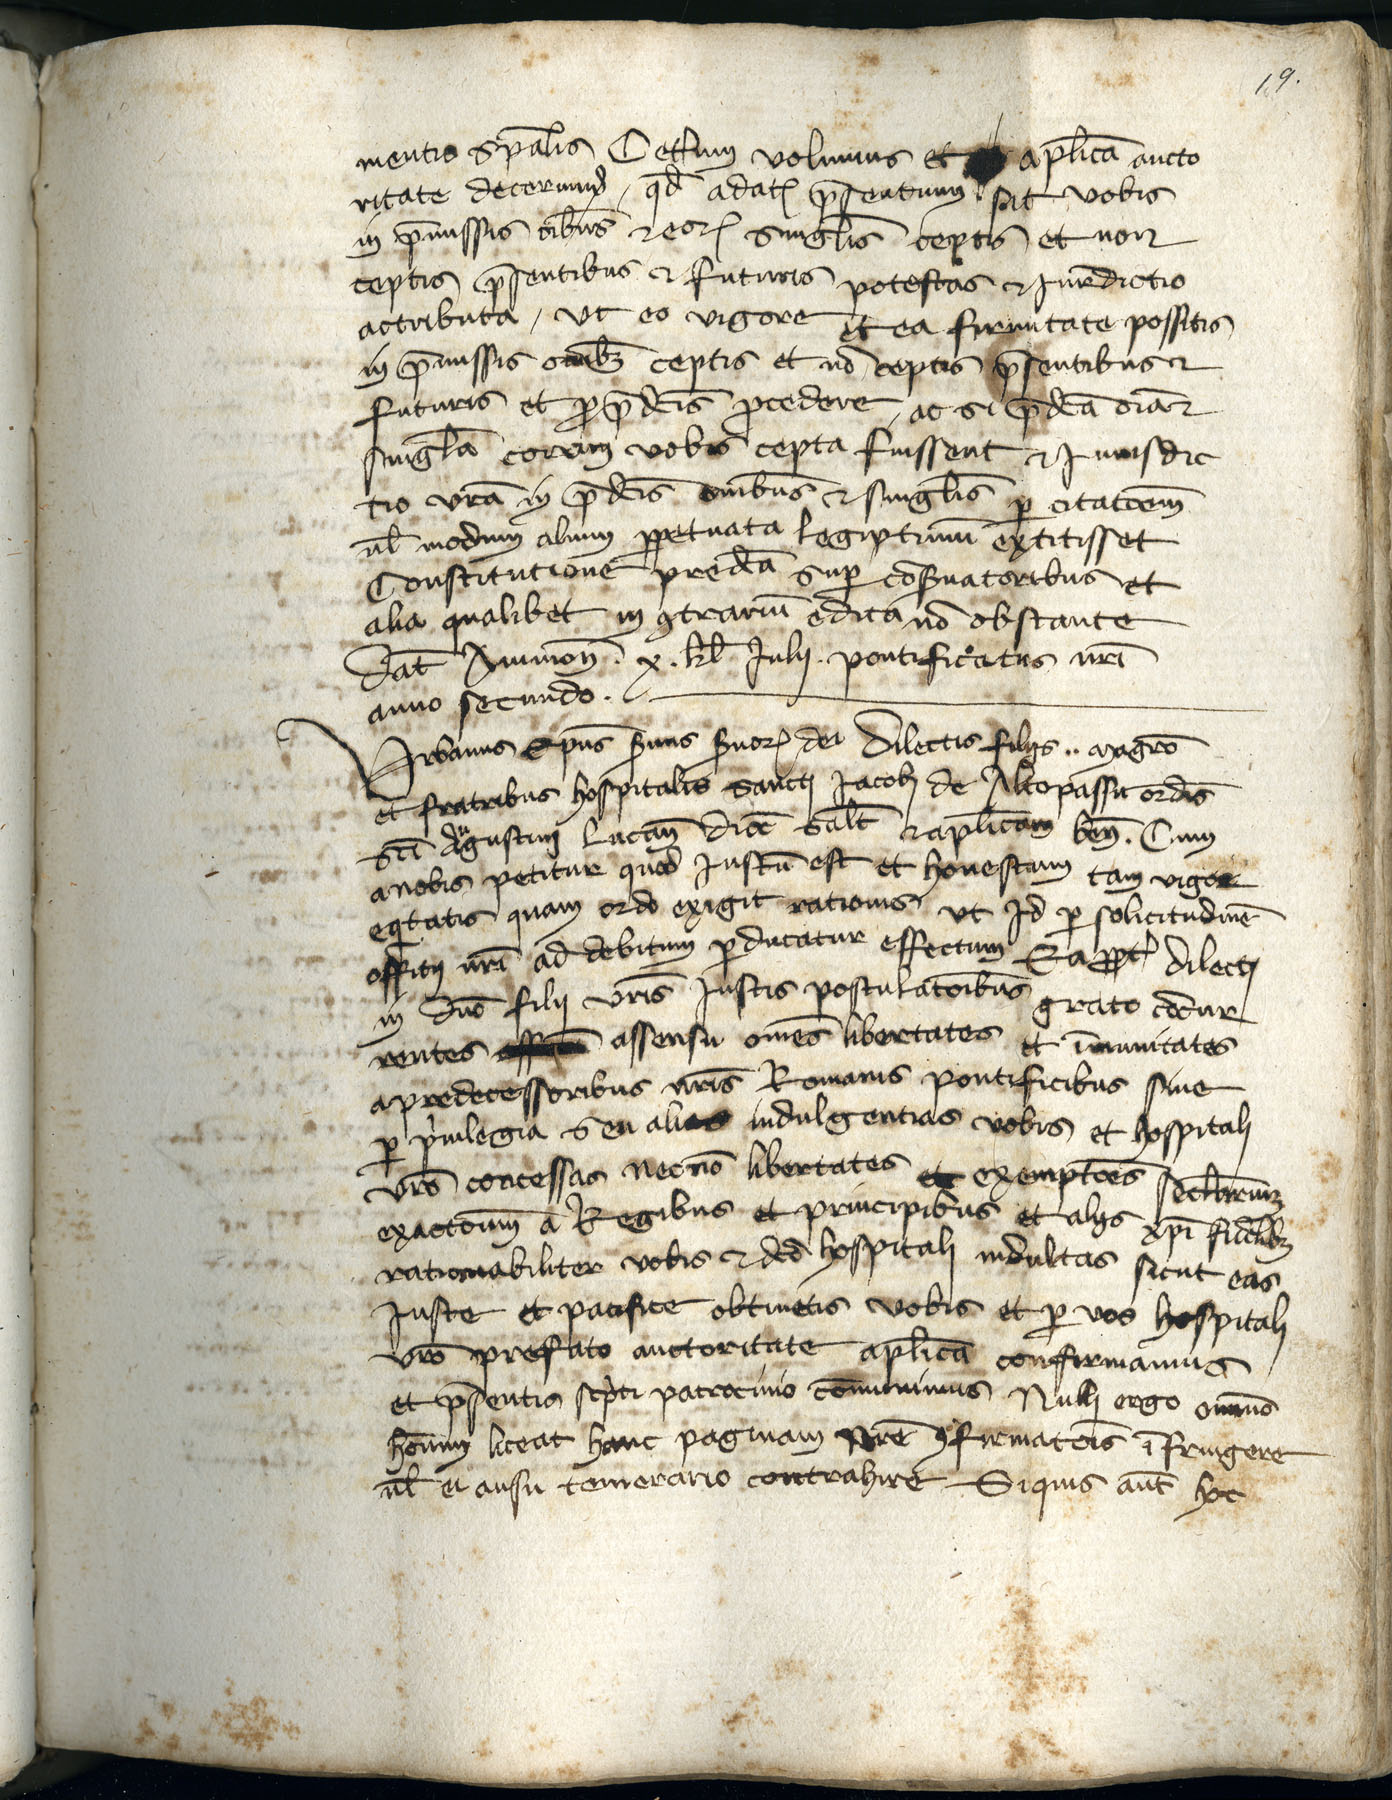 19.
mentis sp̄alis Ceterum volumus et ap̄lica aucto
ritate decernimꝰ, qd̄ a datꝭ p̄sentium sit vobis
in p̄missis oībus et eorꝭ singl̄is ceptis et non
ceptis p̄sentibus et futuris potestas et Iurisdictio
actributa, ut eo vigore et ea firmitate possitis
in p̄missis omībꝫ ceptis et nō ceptis p̄sentibus et
futuris et ꝓ p̄dc̄is ꝓcedere, ac si p̄dc̄a oīa et
singl̄a coram vobis cepta fuissent et Iurisdic
tio vrā in p̄dc̄is omībus et singl̄is ꝑ citatōem
ul̄ modum alium ꝑpetuata legiptimū extitisset
Constitutione predc̄a suꝑ cōs̄vatoribus et
alia qualibet in ꝯtrariū edita nō obstante
Dat̄ Avinion̄. x. kl̄ Iulij. pontificatus nrī
anno secundo.
Urbanus Ep̄us s̄vus s̄vorꝭ dei Dilectis filijs .. magrō
et fratribus hospitalis sancti Iacobi de Altopassu ordīs
sc̄i Augustini Lucan̄ dioc̄ salt̄ et ap̄licam ben̄. Cum
a nobis petitur quod Iustū est et honestum tam vigor
eq̄tatis quam ordo exigit rationis ut Id ꝑ solicitudinē
offitij nrī ad debitum ꝑducatur effectum Eapp̄t̄ dilecti
in dn̄o filij vrīs Iustis postulatōibus grato cōcur
rentes assensu omēs libertates et īmunitates
a predecessoribus nrīs Romanis pontificibus siue
ꝑ p̄uilegia seu alias indulgentias vobis et hospitali
vrō concessas necnō libertates et exemptōes seclarium
exactōnum a Regibus et principibus et alijs xp̄i fidelibꝫ
rationabiliter vobis et dc̄o hospitali indultas sicut eas
Iuste et pacifice obtinetis vobis et ꝑ vos hospitali
vrō prefato auctoritate ap̄lica confirmamus
et p̄sentis sc̄pti patrocinio cōmunimus Nulli ergo omnīo
hoīum liceat hanc paginam nrē ꝯfirmatōis īfringere
ul̄ ei ausu temerario contrahire Siquis aūt hoc